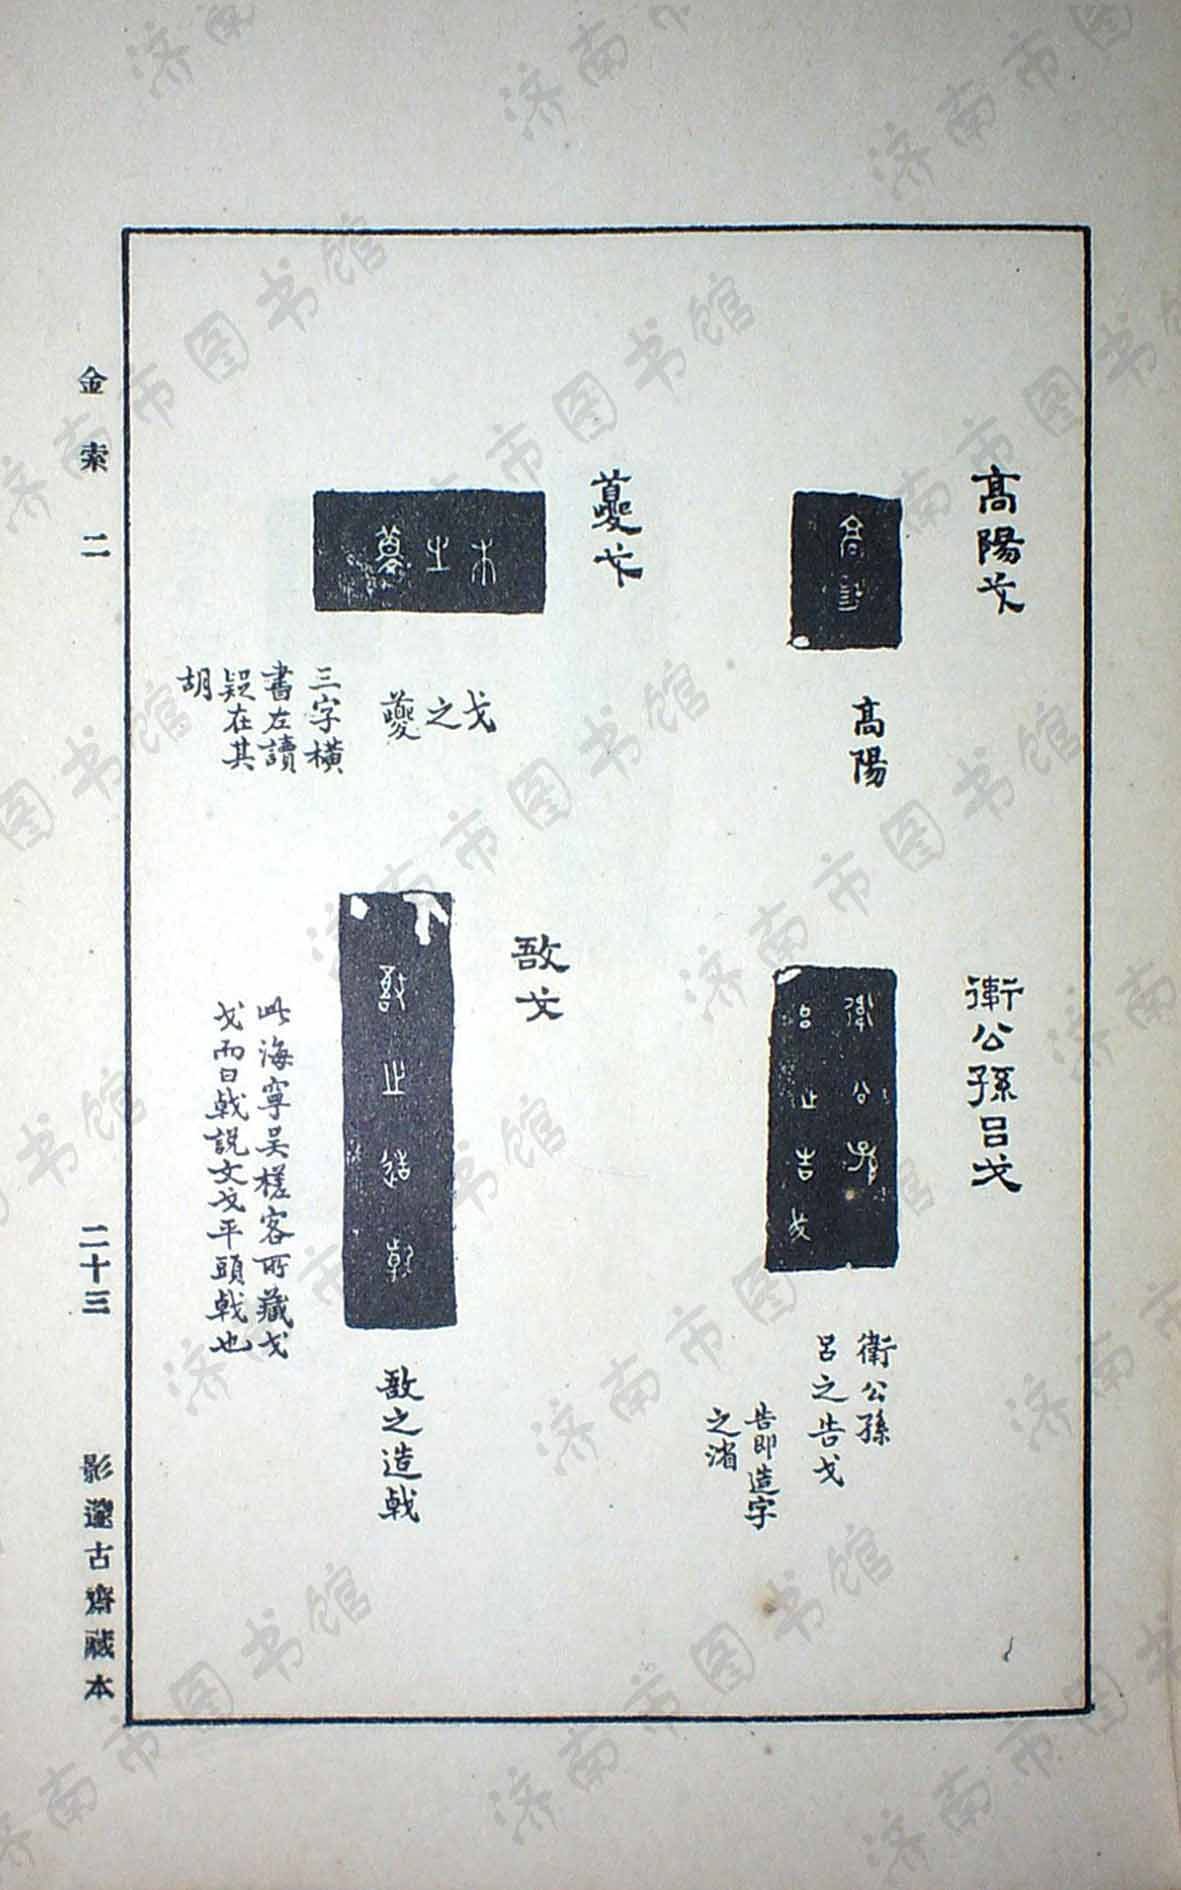 高陽戈
高陽
衛公孫呂戈
衛公孫
呂之告戈
告即造字
之渻
夔戈
戈之夔
三字橫
書左讀
疑在其
胡
敔戈
敔之造戟
此海寧吳槎客所藏戈
戈而曰戟說文戈平頭戟也
金索二
二十三
影邃古齋藏本
济南市图书馆